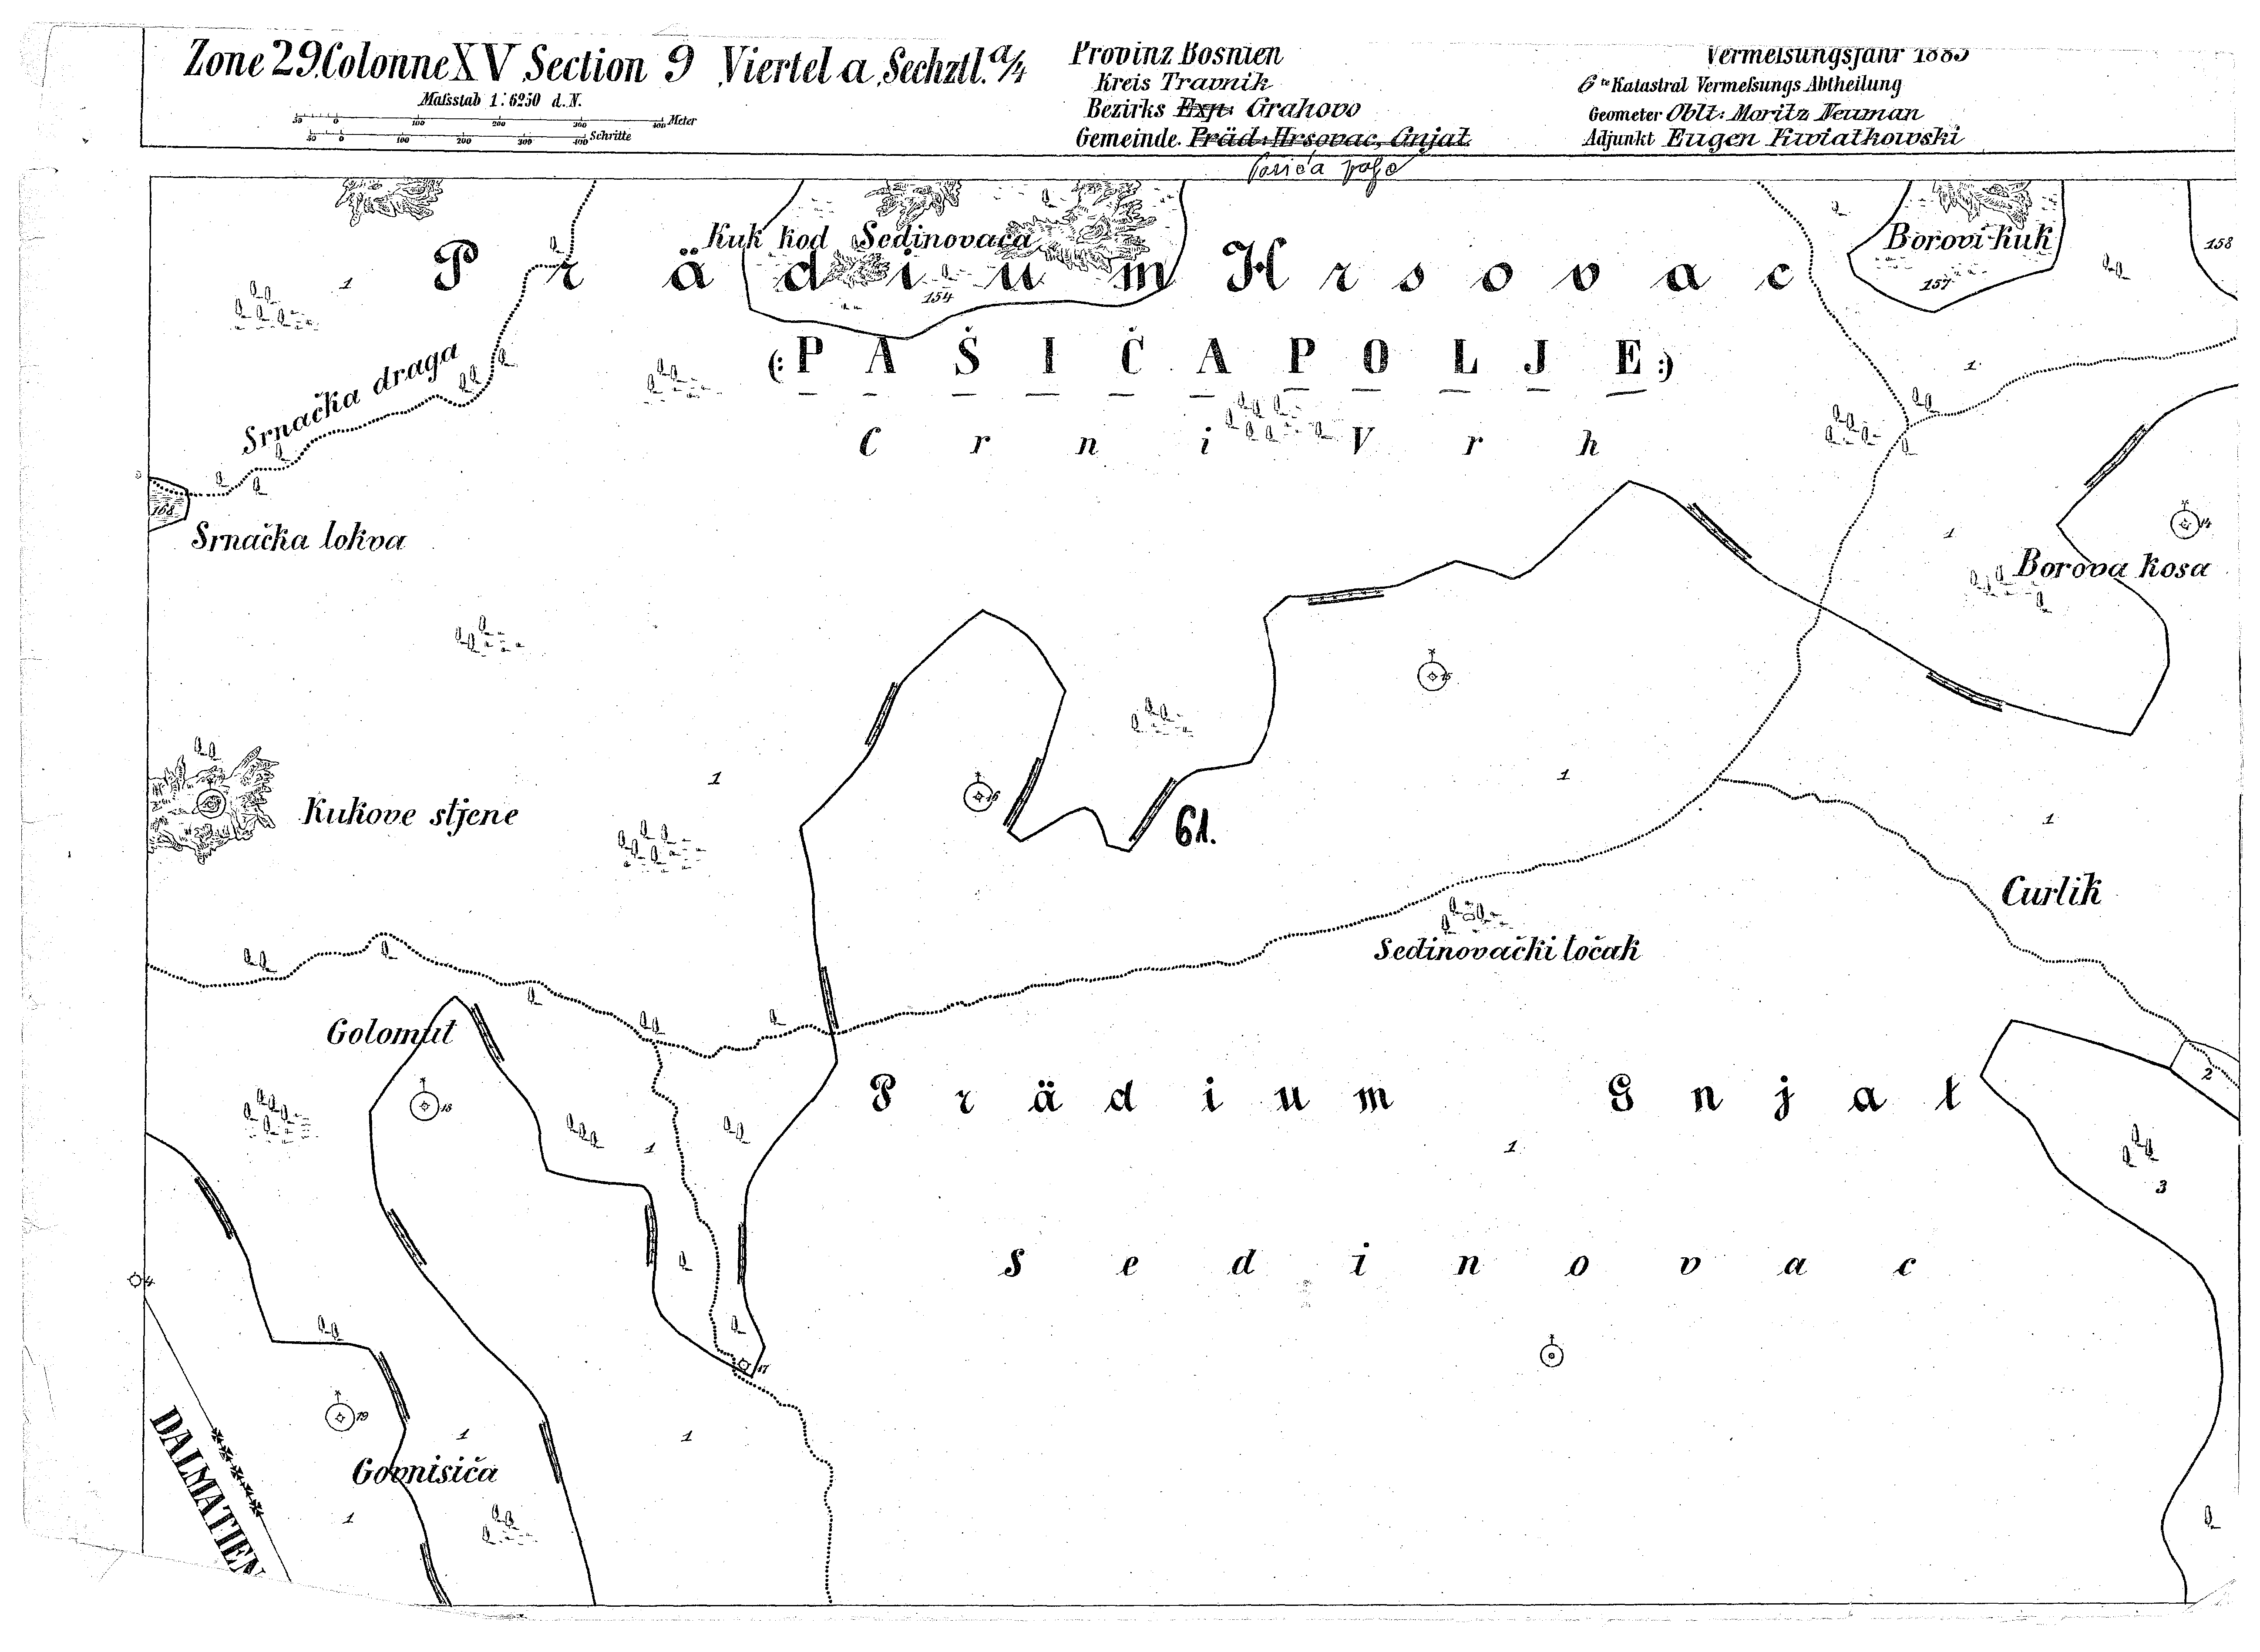 Zone 29. Colonne XV Section 9 Viertel a Sechztl. a/4
Maſsstab 1:6250 d. N.
50 0 100 200 300 400 Meter
50 0 100 200 300 400 Schritte
Provinz Bosnien
Kreis Travnik
Bezirks Exp: Grahovo
Gemeinde. Präd: Hrsovac, Gnjat.
Vermeſsungsjahr 1885
6te Katastral Vermeſsungs Abtheilung
Geometer Oblt: Moritz Neuman
Adjunkt Eugen Kwiatkowski
Kuk kod Sedinovaca
Borovi kuk
158
Prädium Hrsovac
1
154
157
(: PAŠIĆA POLJE :)
Srnačka draga
1
Crni Vrh
168
Srnačka lokva
14
1
Borova kosa
15
1
16
1
Kukove stjene
61.
1
Curlik
Sedinovački točak
Golomut
2
Prädium Gnjat
18
1
1
3
Sedinovac
4
17
19
1
1
DALMATIEN
Govnisića
1